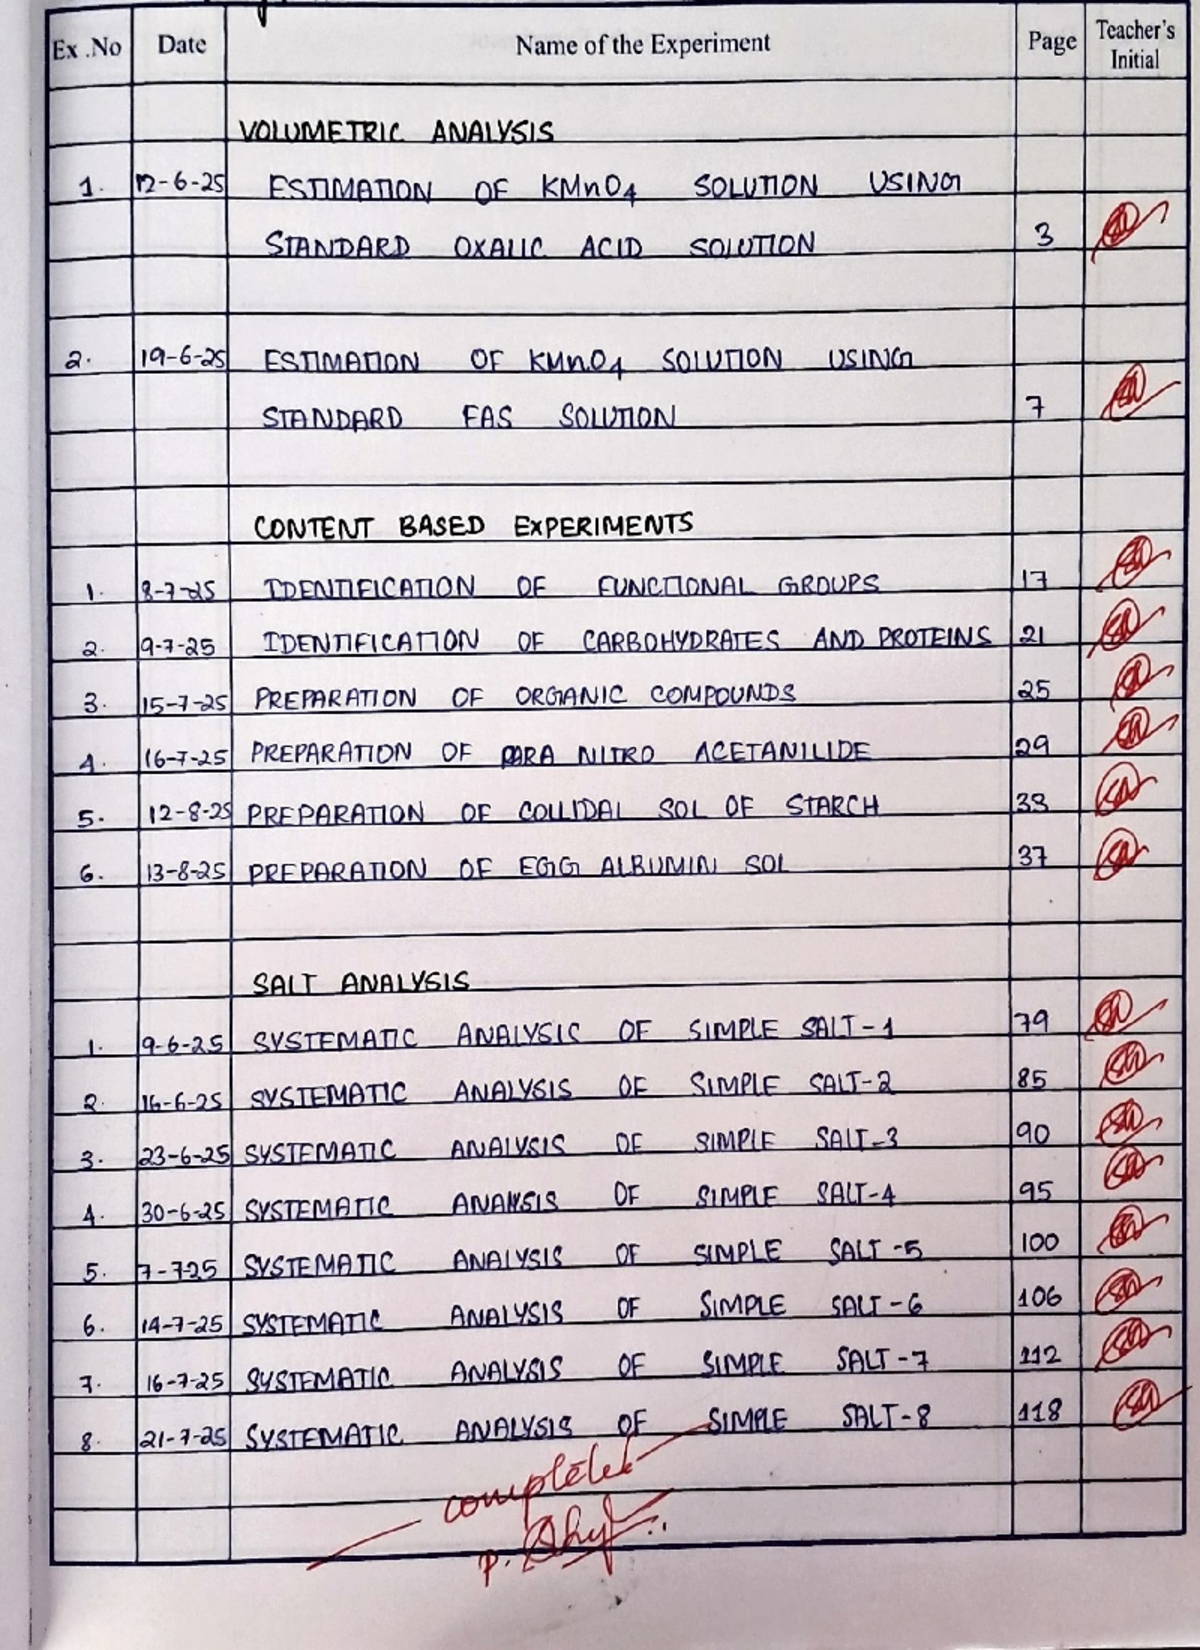 Ex .No Date Name of the Experiment Page Teacher's Initial
VOLUMETRIC ANALYSIS
1. 12-6-25 ESTIMATION OF KMnO4 SOLUTION USING
STANDARD OXALIC ACID SOLUTION 3
2. 19-6-25 ESTIMATION OF KMnO4 SOLUTION USING
STANDARD FAS SOLUTION 7
CONTENT BASED EXPERIMENTS
1. 8-7-25 IDENTIFICATION OF FUNCTIONAL GROUPS 17
2. 9-7-25 IDENTIFICATION OF CARBOHYDRATES AND PROTEINS 21
3. 15-7-25 PREPARATION OF ORGANIC COMPOUNDS 25
4. 16-7-25 PREPARATION OF PARA NITRO ACETANILIDE 29
5. 12-8-25 PREPARATION OF COLLIDAL SOL OF STARCH 33
6. 13-8-25 PREPARATION OF EGG ALBUMIN SOL 37
SALT ANALYSIS
1. 9-6-25 SYSTEMATIC ANALYSIS OF SIMPLE SALT-1 79
2. 16-6-25 SYSTEMATIC ANALYSIS OF SIMPLE SALT-2 85
3. 23-6-25 SYSTEMATIC ANALYSIS OF SIMPLE SALT-3 90
4. 30-6-25 SYSTEMATIC ANALYSIS OF SIMPLE SALT-4 95
5. 7-725 SYSTEMATIC ANALYSIS OF SIMPLE SALT-5 100
6. 14-7-25 SYSTEMATIC ANALYSIS OF SIMPLE SALT-6 106
7. 16-7-25 SYSTEMATIC ANALYSIS OF SIMPLE SALT-7 112
8. 21-7-25 SYSTEMATIC ANALYSIS OF SIMPLE SALT-8 118
completed